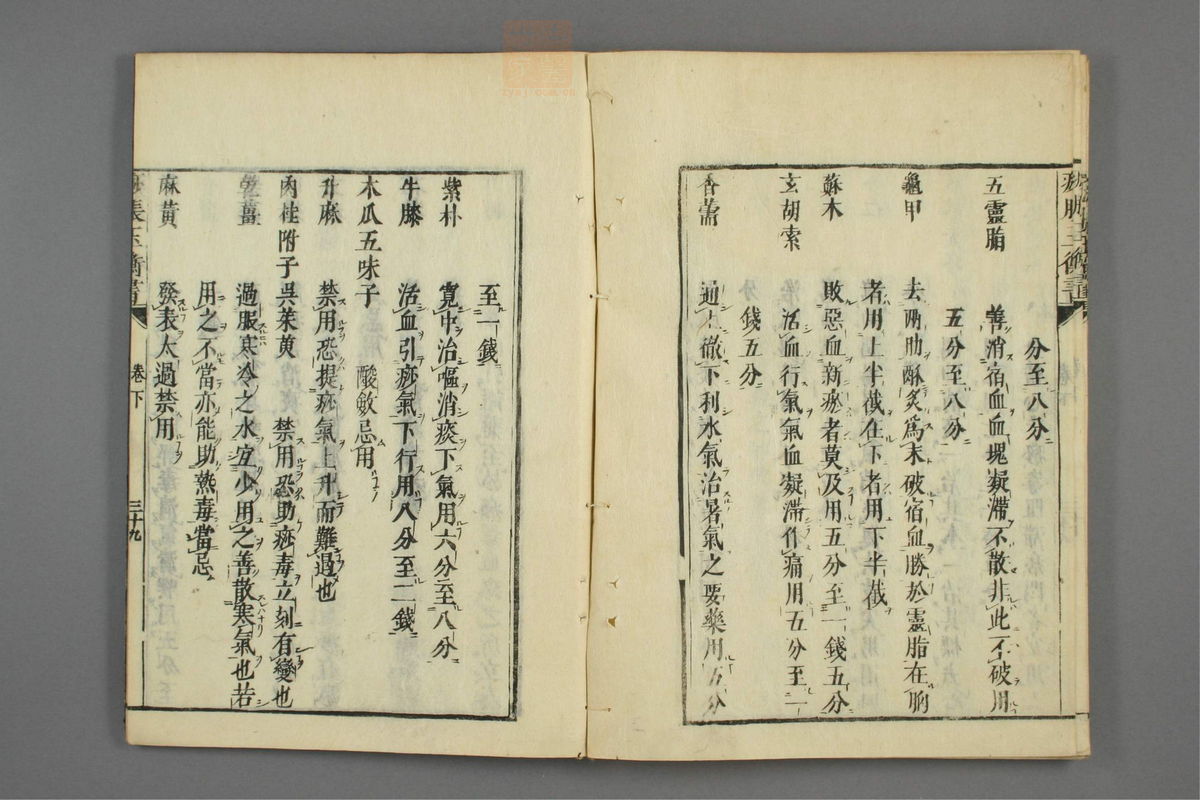 分至八分
五靈脂 善消宿血血塊凝滯不散非此不破用
五分至八分
龜甲 去兩肋酥炙爲末破宿血勝於靈脂在胸
者用上半截在下者用下半截
蘇木 敗惡血新瘀者莫及用五分至一錢五分
玄胡索 活血行氣氣血凝滯作痛用五分至一
錢五分
香薷 通上徹下利水氣治暑氣之要藥用五分
至一錢
紫朴 寬中治嘔消痰下氣用六分至八分
牛膝 活血引痧氣下行用八分至二錢
木瓜五味子 酸斂忌用
升麻 禁用恐提痧氣上升而難過也
肉桂附子吳茱萸 禁用恐助痧毒立刻有變也
薑 過服寒冷之水宜少用之善散寒氣也若
用之不當亦能助熱毒當忌
麻黃 發表太過禁用
痧脹玉衡書 卷下 三十九
zysj.com.cn